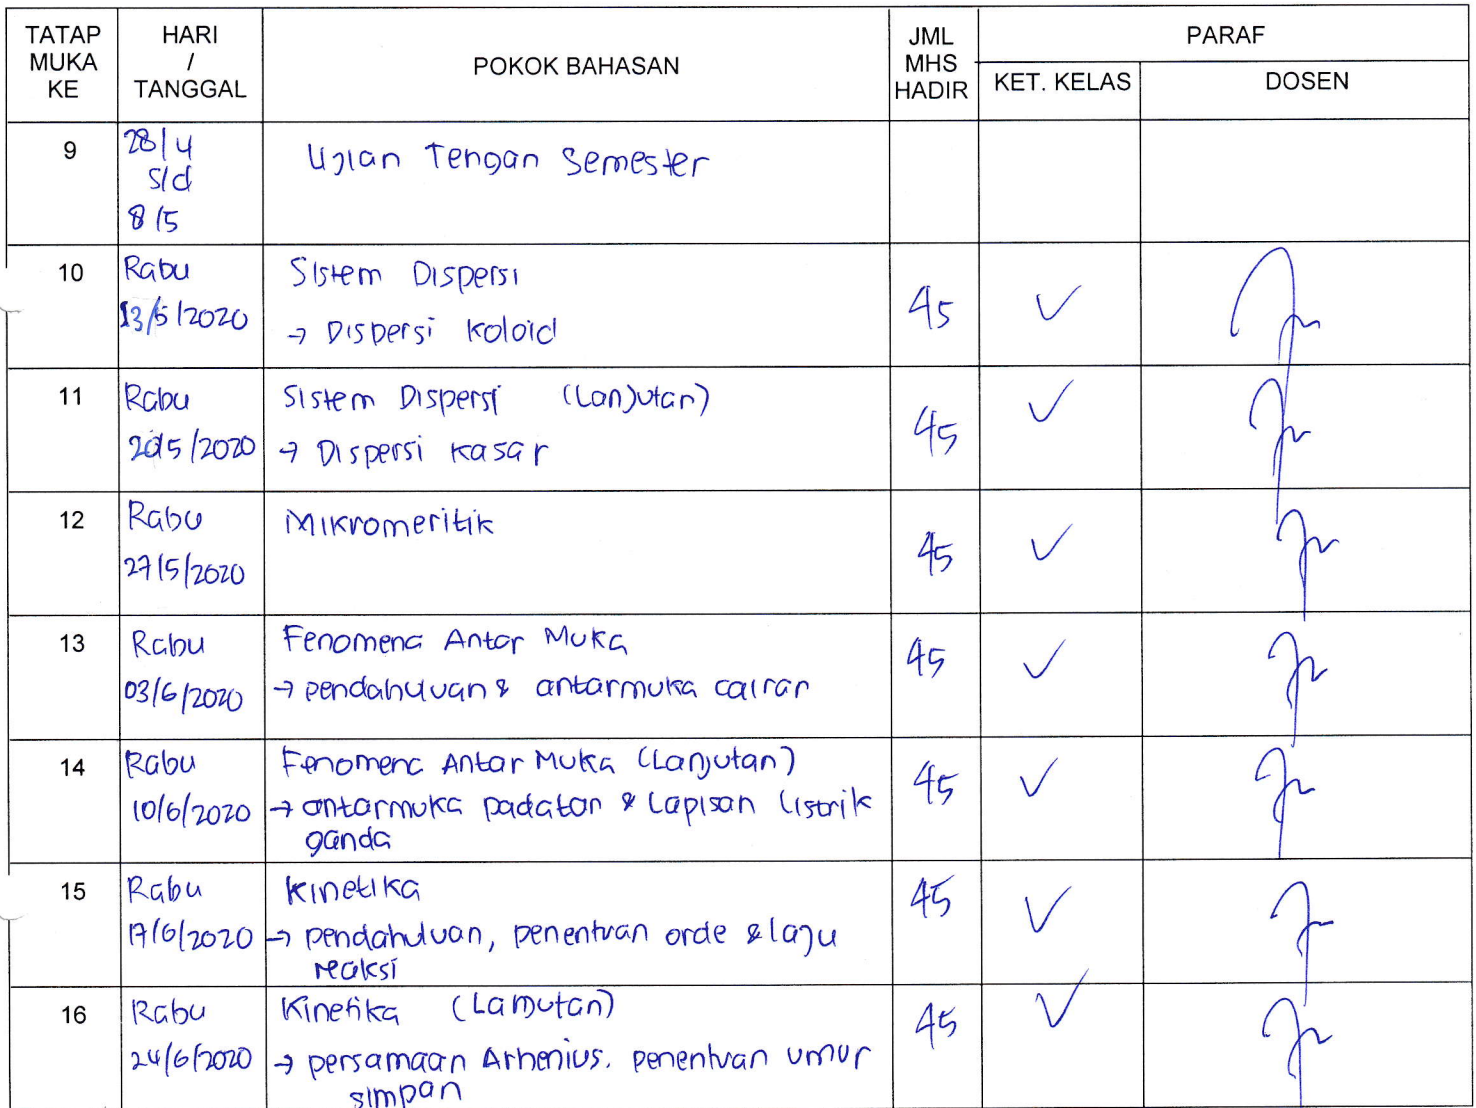 TATAP MUKA KE
HARI / TANGGAL
POKOK BAHASAN
JML MHS HADIR
PARAF
KET. KELAS
DOSEN
9
28/4
s/d
8/5
Ujian Tengah Semester
10
Rabu
13/5/2020
Sistem Dispersi
→ Dispersi koloid
45
✓
11
Rabu
20/5/2020
Sistem Dispersi (Lanjutan)
→ Dispersi kasar
45
✓
12
Rabu
27/5/2020
Mikromeritik
45
✓
13
Rabu
03/6/2020
Fenomena Antar Muka
→ pendahuluan & antarmuka cairan
45
✓
14
Rabu
10/6/2020
Fenomena Antar Muka (Lanjutan)
→ antarmuka padatan & Lapisan listrik
ganda
45
✓
15
Rabu
17/6/2020
Kinetika
→ pendahuluan, penentuan orde & laju
reaksi
45
✓
16
Rabu
24/6/2020
Kinetika (Lanjutan)
→ persamaan Arhenius. penentuan umur
simpan
45
✓